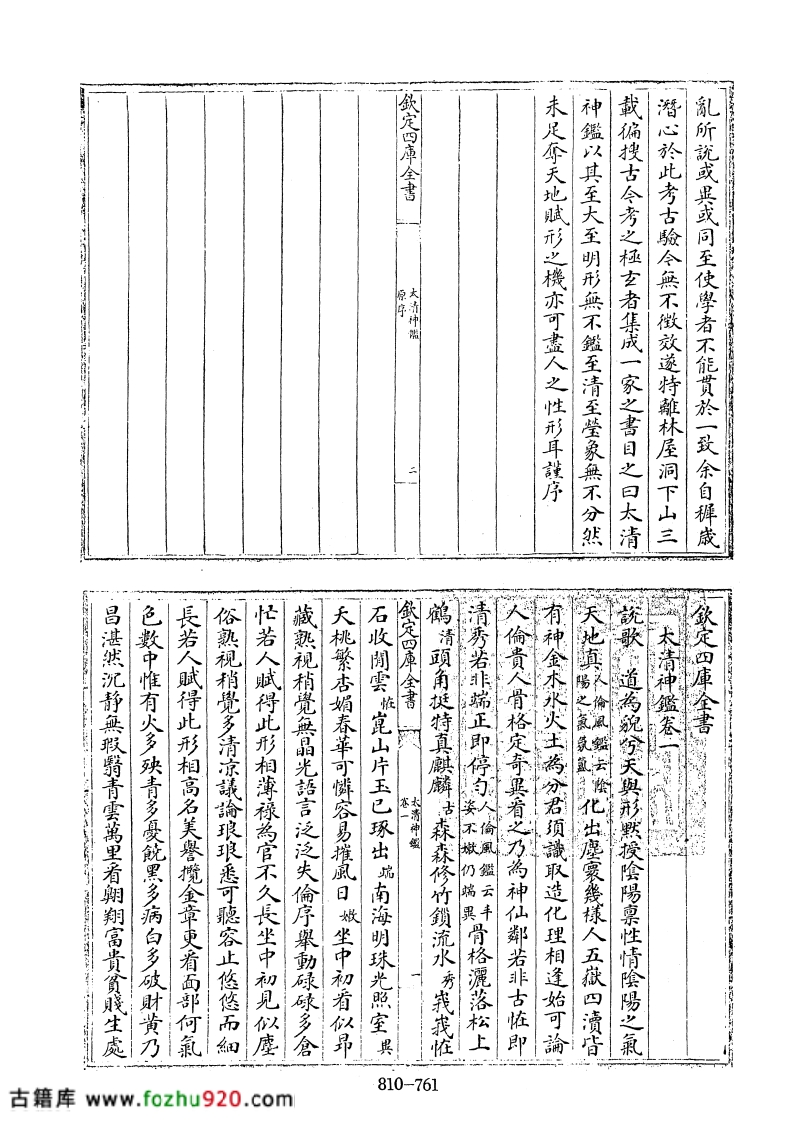 亂所說或異或同至使學者不能貫於一致余自穉歲
潛心於此考古驗今無不徵效遂特離林屋洞下山三
載徧搜古今考之極玄者集成一家之書目之曰太清
神鑑以其至大至明形無不鑑至清至瑩象無不分然
未足奪天地賦形之機亦可盡人之性形耳謹序
欽定四庫全書
太清神鑑
原序
二
欽定四庫全書
太清神鑑卷一
說歌 道為貌兮天與形默授陰陽稟性情陰陽之氣
天地真人倫風鑑云陰陽之氣氣氤化出塵寰幾樣人五嶽四瀆皆
有神金木水火土為分君須識取造化理相逢始可論
人倫貴人骨格定奇異看之乃為神仙鄰若非古怪即
清秀若非端正即停勻人倫風鑑云手姿不媺仍端異骨格灑落松上
鶴清頭角挺特真麒麟古森森修竹鎖流水秀峩峩怪
石收閒雲怪崑山片玉已琢出端南海明珠光照室異
夭桃繁杏媚春華可憐容易摧風日媺坐中初看似昻
藏熟視稍覺無晶光語言泛泛失倫序舉動碌碌多倉
忙若人賦得此形相薄祿為官不久長坐中初見似塵
俗熟視稍覺多清凉議論琅琅悉可聽容止悠悠而細
長若人賦得此形相高名美譽攬金章更看面部何氣
色數中惟有火多殃青多憂饒黑多病白多破財黄乃
昌湛然沉静無瑕翳青雲萬里看翺翔富貴貧賤生處
欽定四庫全書
太清神鑑
卷一
一
810-761
古籍库 www.fozhu920.com